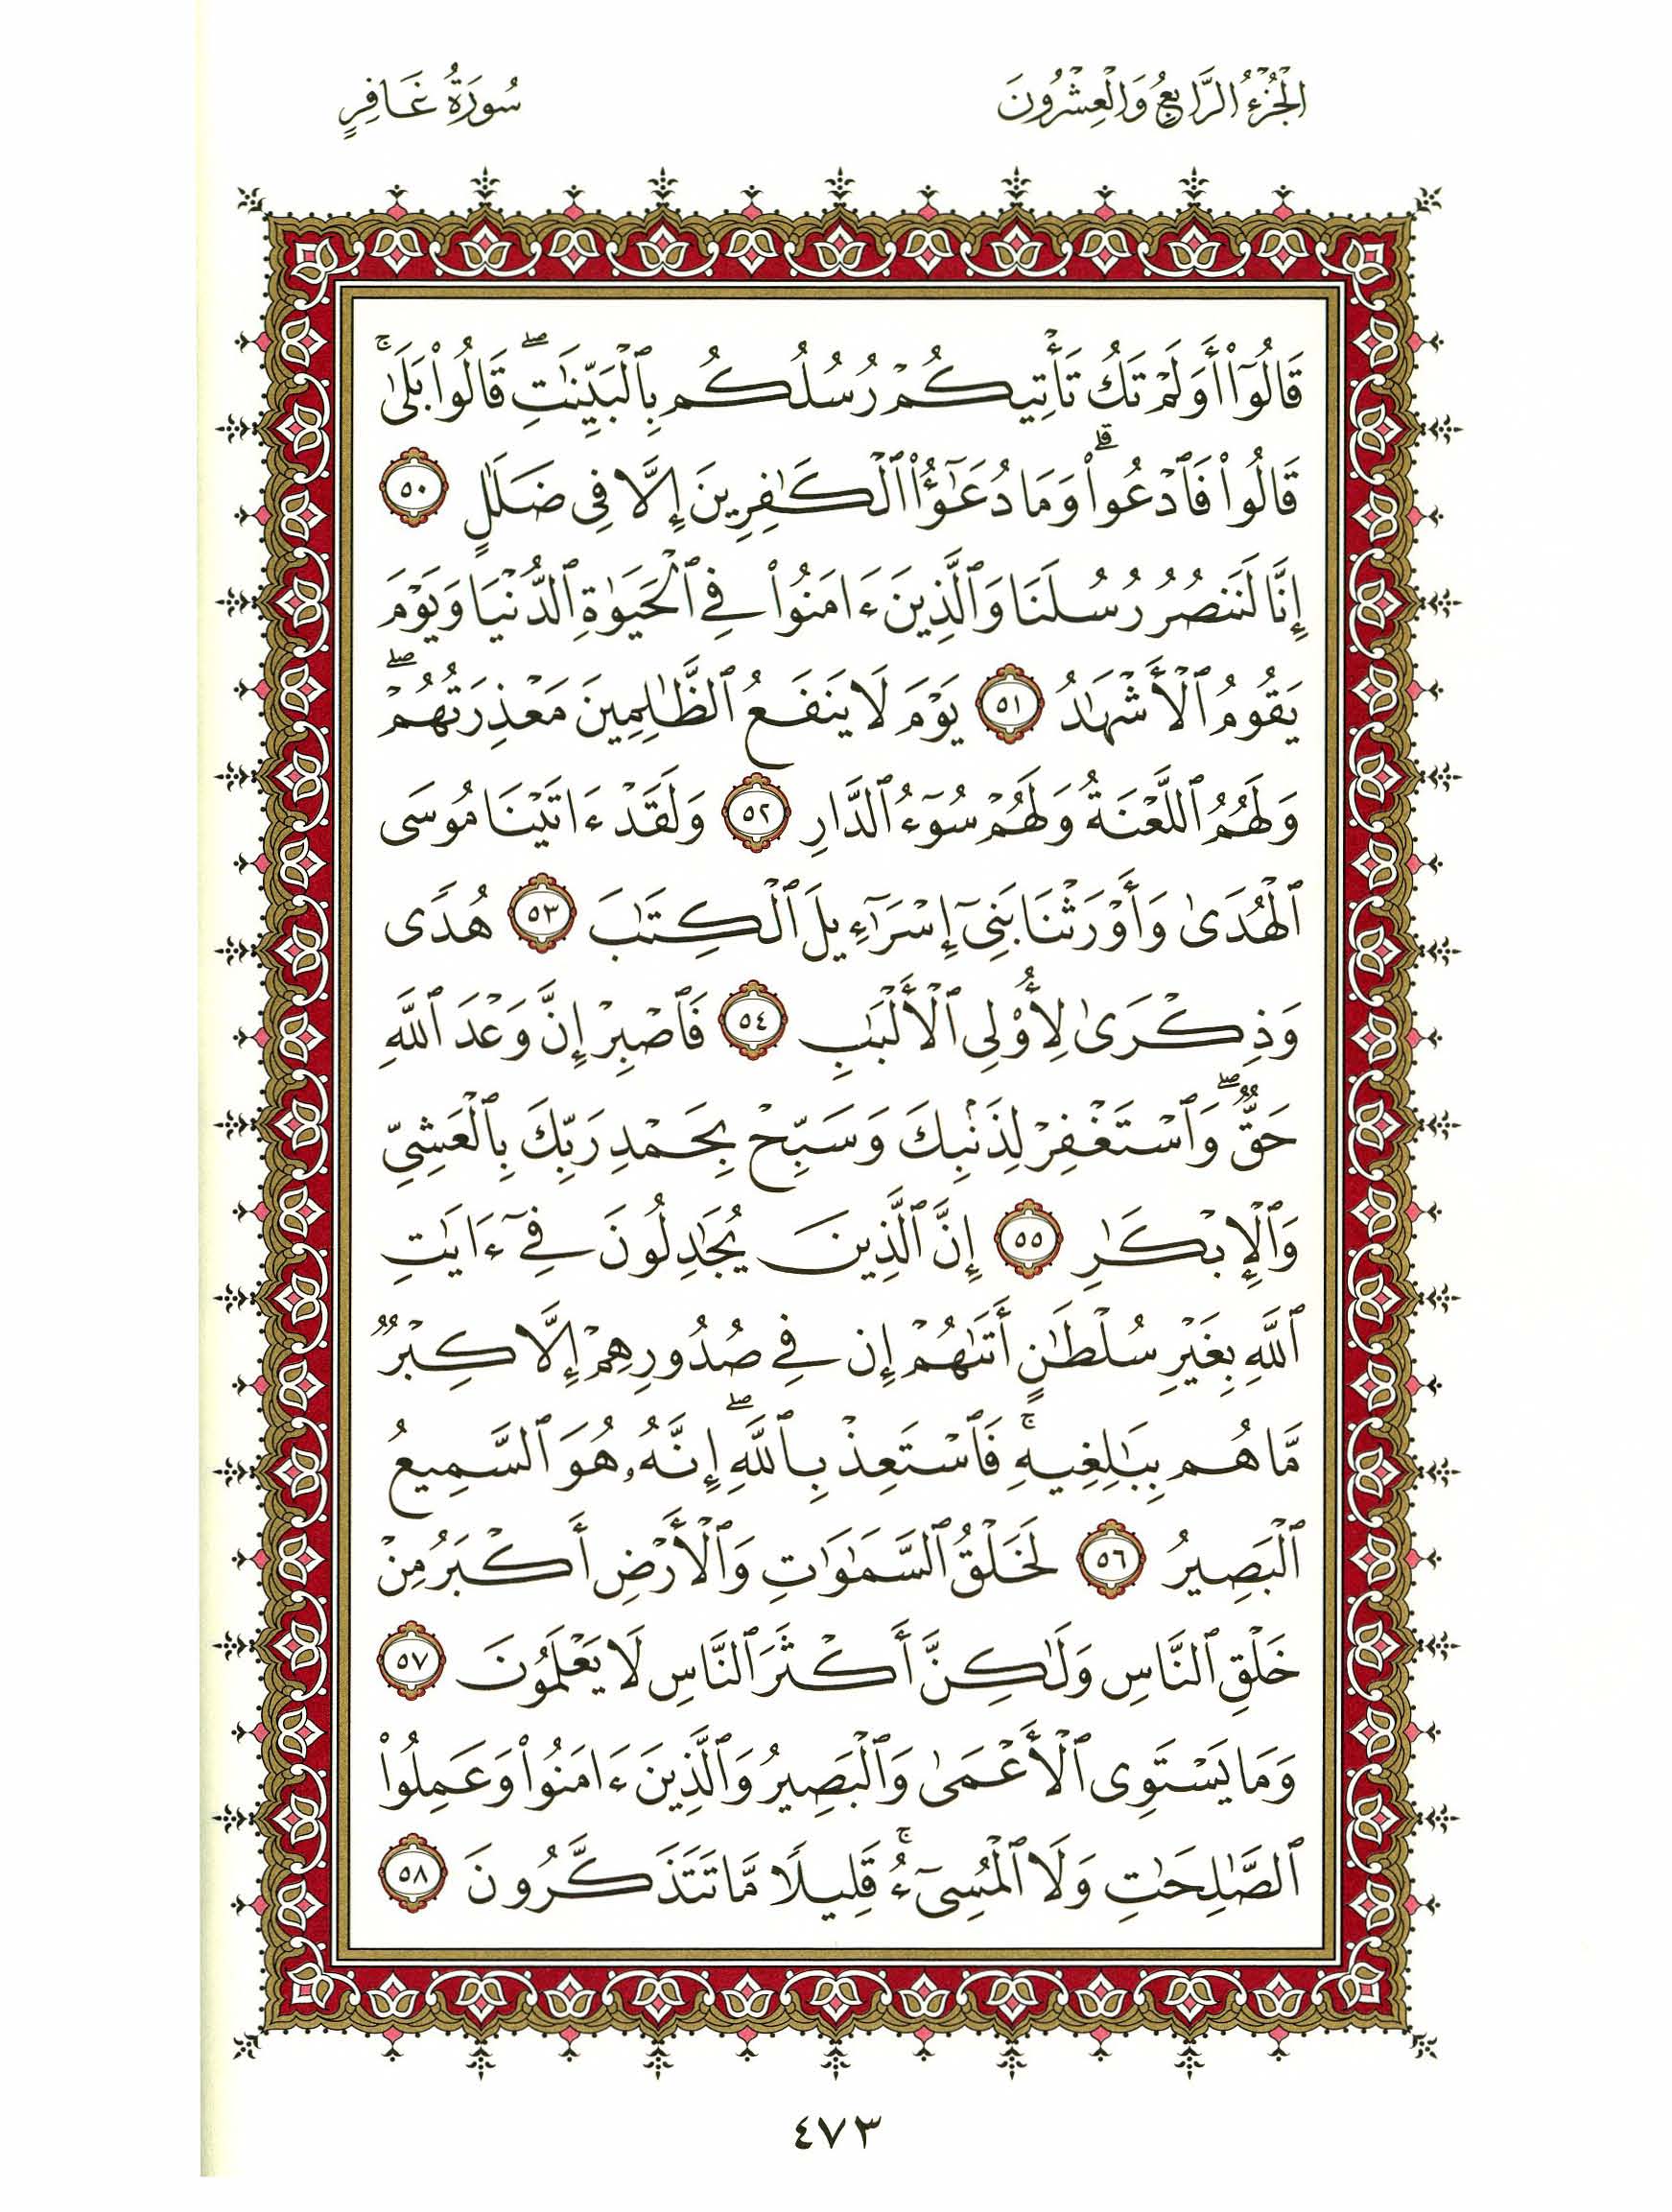 الجُزْءُ الرَّابِعُ وَالْعِشْرُونَ
سُورَةُ غَافِرٍ
قَالُوٓا۟ أَوَلَمْ تَكُ تَأْتِيكُمْ رُسُلُكُم بِٱلْبَيِّنَٰتِ ۖ قَالُوا۟ بَلَىٰ ۚ
قَالُوا۟ فَٱدْعُوا۟ ۗ وَمَا دُعَٰٓؤُا۟ ٱلْكَٰفِرِينَ إِلَّا فِى ضَلَٰلٍ ٥٠
إِنَّا لَنَنصُرُ رُسُلَنَا وَٱلَّذِينَ ءَامَنُوا۟ فِى ٱلْحَيَوٰةِ ٱلدُّنْيَا وَيَوْمَ
يَقُومُ ٱلْأَشْهَٰدُ ٥١ يَوْمَ لَا يَنفَعُ ٱلظَّٰلِمِينَ مَعْذِرَتُهُمْ ۖ
وَلَهُمُ ٱللَّعْنَةُ وَلَهُمْ سُوٓءُ ٱلدَّارِ ٥٢ وَلَقَدْ ءَاتَيْنَا مُوسَى
ٱلْهُدَىٰ وَأَوْرَثْنَا بَنِىٓ إِسْرَٰٓءِيلَ ٱلْكِتَٰبَ ٥٣ هُدًى
وَذِكْرَىٰ لِأُو۟لِى ٱلْأَلْبَٰبِ ٥٤ فَٱصْبِرْ إِنَّ وَعْدَ ٱللَّهِ
حَقٌّ ۖ وَٱسْتَغْفِرْ لِذَنۢبِكَ وَسَبِّحْ بِحَمْدِ رَبِّكَ بِٱلْعَشِىِّ
وَٱلْإِبْكَٰرِ ٥٥ إِنَّ ٱلَّذِينَ يُجَٰدِلُونَ فِىٓ ءَايَٰتِ
ٱللَّهِ بِغَيْرِ سُلْطَٰنٍ أَتَىٰهُمْ إِن فِى صُدُورِهِمْ إِلَّا كِبْرٌ
مَّا هُم بِبَٰلِغِيهِ ۚ فَٱسْتَعِذْ بِٱللَّهِ ۖ إِنَّهُۥ هُوَ ٱلسَّمِيعُ
ٱلْبَصِيرُ ٥٦ لَخَلْقُ ٱلسَّمَٰوَٰتِ وَٱلْأَرْضِ أَكْبَرُ مِنْ
خَلْقِ ٱلنَّاسِ وَلَٰكِنَّ أَكْثَرَ ٱلنَّاسِ لَا يَعْلَمُونَ ٥٧
وَمَا يَسْتَوِى ٱلْأَعْمَىٰ وَٱلْبَصِيرُ وَٱلَّذِينَ ءَامَنُوا۟ وَعَمِلُوا۟
ٱلصَّٰلِحَٰتِ وَلَا ٱلْمُسِىٓءُ ۚ قَلِيلًا مَّا تَتَذَكَّرُونَ ٥٨
٤٧٣